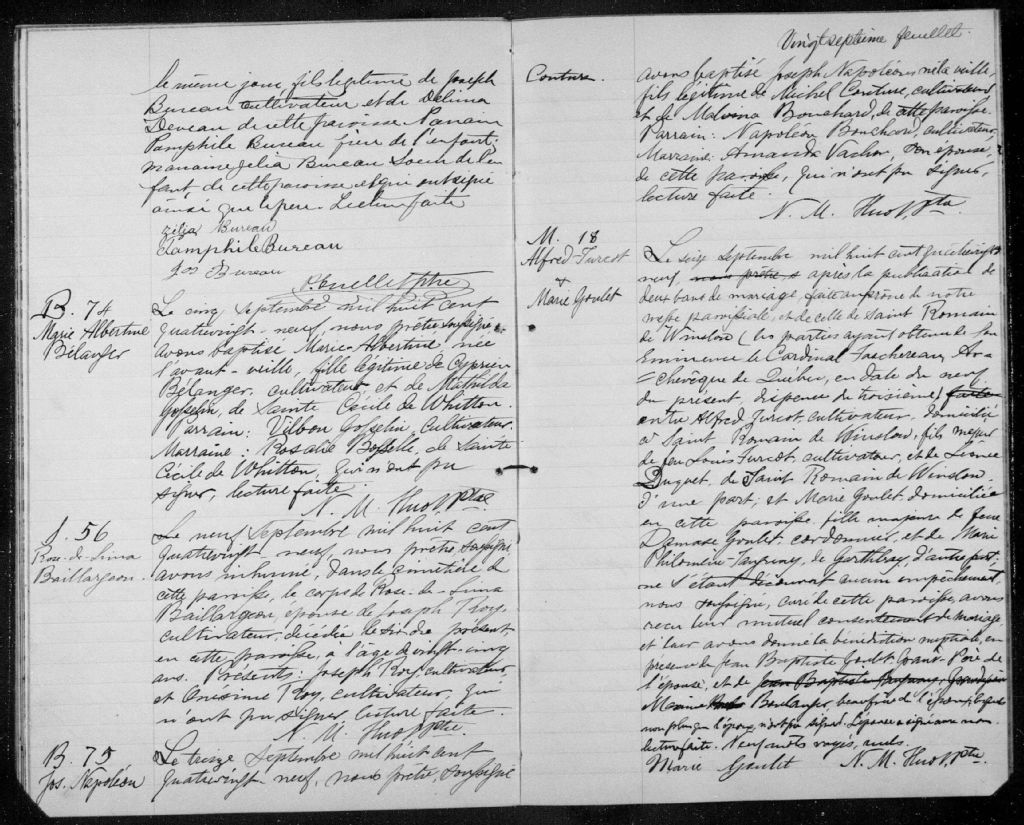 le même jour, fils legitime de Joseph
Bureau cultivateur et de Delima
Deveau de cette paroisse. Parrain
Pamphile Bureau frère de l'enfant;
marraine Zelia Bureau soeur de l'en
fant de cette paroisse et qui ont signé
ainsi que le père. Lecture faite
Zélia Bureau
Pamphile Bureau
Jos Bureau
B. 74
Marie Albertine
Bélanger
Le cinq Septembre mil huit cent
quatrevingt-neuf, nous prêtre soussigné
avons baptisé Marie-Albertine née
l'avant-veille, fille légitime de Cyprien
Bélanger, cultivateur, et de Mathilda
Gosselin, de Sainte Cécile de Whitton.
Parrain: Vilbon Gosselin, cultivateur.
Marraine: Rosalie de Sainte
Cécile de Whitton, qui n'ont pu
signer, lecture faite.
N. M. Huot Ptre
S. 56
Rose-de-Lima
Baillargeon.
Le neuf Septembre mil huit cent
quatrevingt neuf, nous prêtre soussigné,
avons inhumé, dans le cimetière de
cette paroisse, le corps de Rose-de-Lima
Baillargeon, épouse de Joseph Roy,
cultivateur, décédée le six du présent,
en cette paroisse, à l'âge de vingt-cinq
ans. Présents: Joseph Roy, cultivateur,
et Onésime Roy, cultivateur, qui
n'ont pu signer, lecture faite.
N. M. Huot Ptre
B. 75
Jos. Napoléon
Le treize Septembre mil huit cent
quatrevingt neuf, nous prêtre, soussigné
Vingt septième feuillet.
Couture.
avons baptisé Joseph Napoléon né la veille,
fils légitime de Michel Couture, cultivateur
et de Malvina Bouchard, de cette paroisse.
Parrain: Napoléon Bouchard, cultivateur,
Marraine: Amanda Vachon, son épouse,
de cette paroisse, qui n'ont pu signer,
lecture faite.
N. M. Huot Ptre
M. 18
Alfred Turcot
+
Marie Goulet
Le seize Septembre mil huit cent quatrevingt
neuf, nous prêtre, s après la publication de
deux bans de mariage, faite au prône de notre
messe paroissiale, et de celle de Saint Romain
de Winslow (les parties ayant obtenu de Son
Eminence le Cardinal Taschereau, Ar=
=chevêque de Québec, en date du neuf
du présent, dispense du troisième) faite
entre Alfred Turcot, cultivateur, domicilié
à Saint Romain de Winslow, fils majeur
de feu Louis Turcot, cultivateur, et de
Duquet, de Saint Romain de Winslow,
d'une part; et Marie Goulet domiciliée
en cette paroisse, fille majeure de feu
Damase Goulet, cordonnier, et de Marie
Philomène Tanguay, de Garthby, d'autre part;
ne s'étant découvert aucun empêchement,
nous soussigné, curé de cette paroisse avons
reçu leur mutuel consentement de mariage
et leur avons donné la bénédiction nuptiale, en
présence de Jean Baptiste Goulet, Grand Père de
l'épouse, et de Jean Baptiste Tanguay,
Boulanger, beau frère de l'époux, lesquels
non plus que l'époux n'ont pu signer. L'épouse a signé avec nous
lecture faite. Neuf mots rayés, nuls.
Marie Goulet N. M. Huot Ptre.